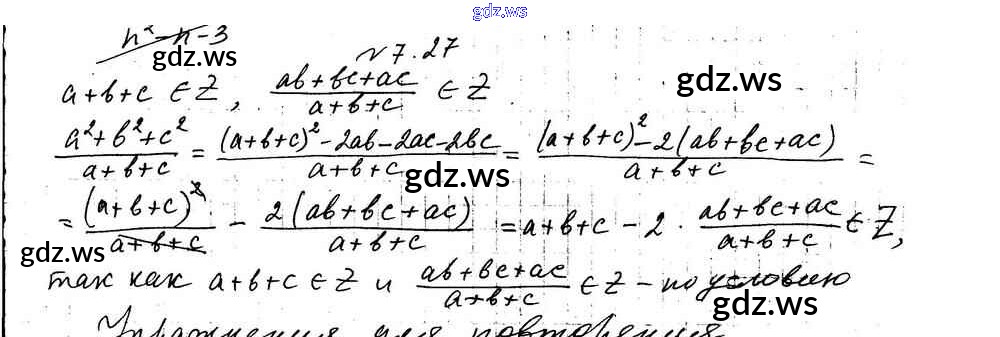 gdz.ws
n² - n - 3
gdz.ws
N 7.27
a+b+c ∈ Z, (ab+bc+ac)/(a+b+c) ∈ Z
gdz.ws
(a²+b²+c²)/(a+b+c) = ((a+b+c)² - 2ab - 2ac - 2bc)/(a+b+c) = ((a+b+c)² - 2(ab+bc+ac))/(a+b+c) =
gdz.ws
= (a+b+c)²/(a+b+c) - 2(ab+bc+ac)/(a+b+c) = a+b+c - 2 · (ab+bc+ac)/(a+b+c) ∈ Z,
gdz.ws
так как a+b+c ∈ Z и (ab+bc+ac)/(a+b+c) ∈ Z - по условию
gdz.ws
Упражнения для повторения